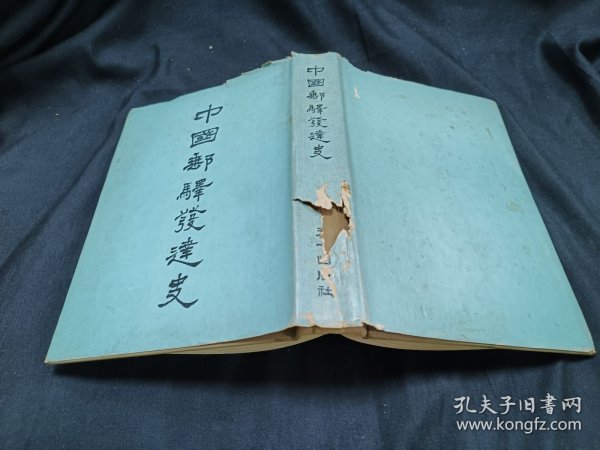 中國郵驛發達史
中國郵驛發達史
出版社
孔夫子旧书网
www.kongfz.com